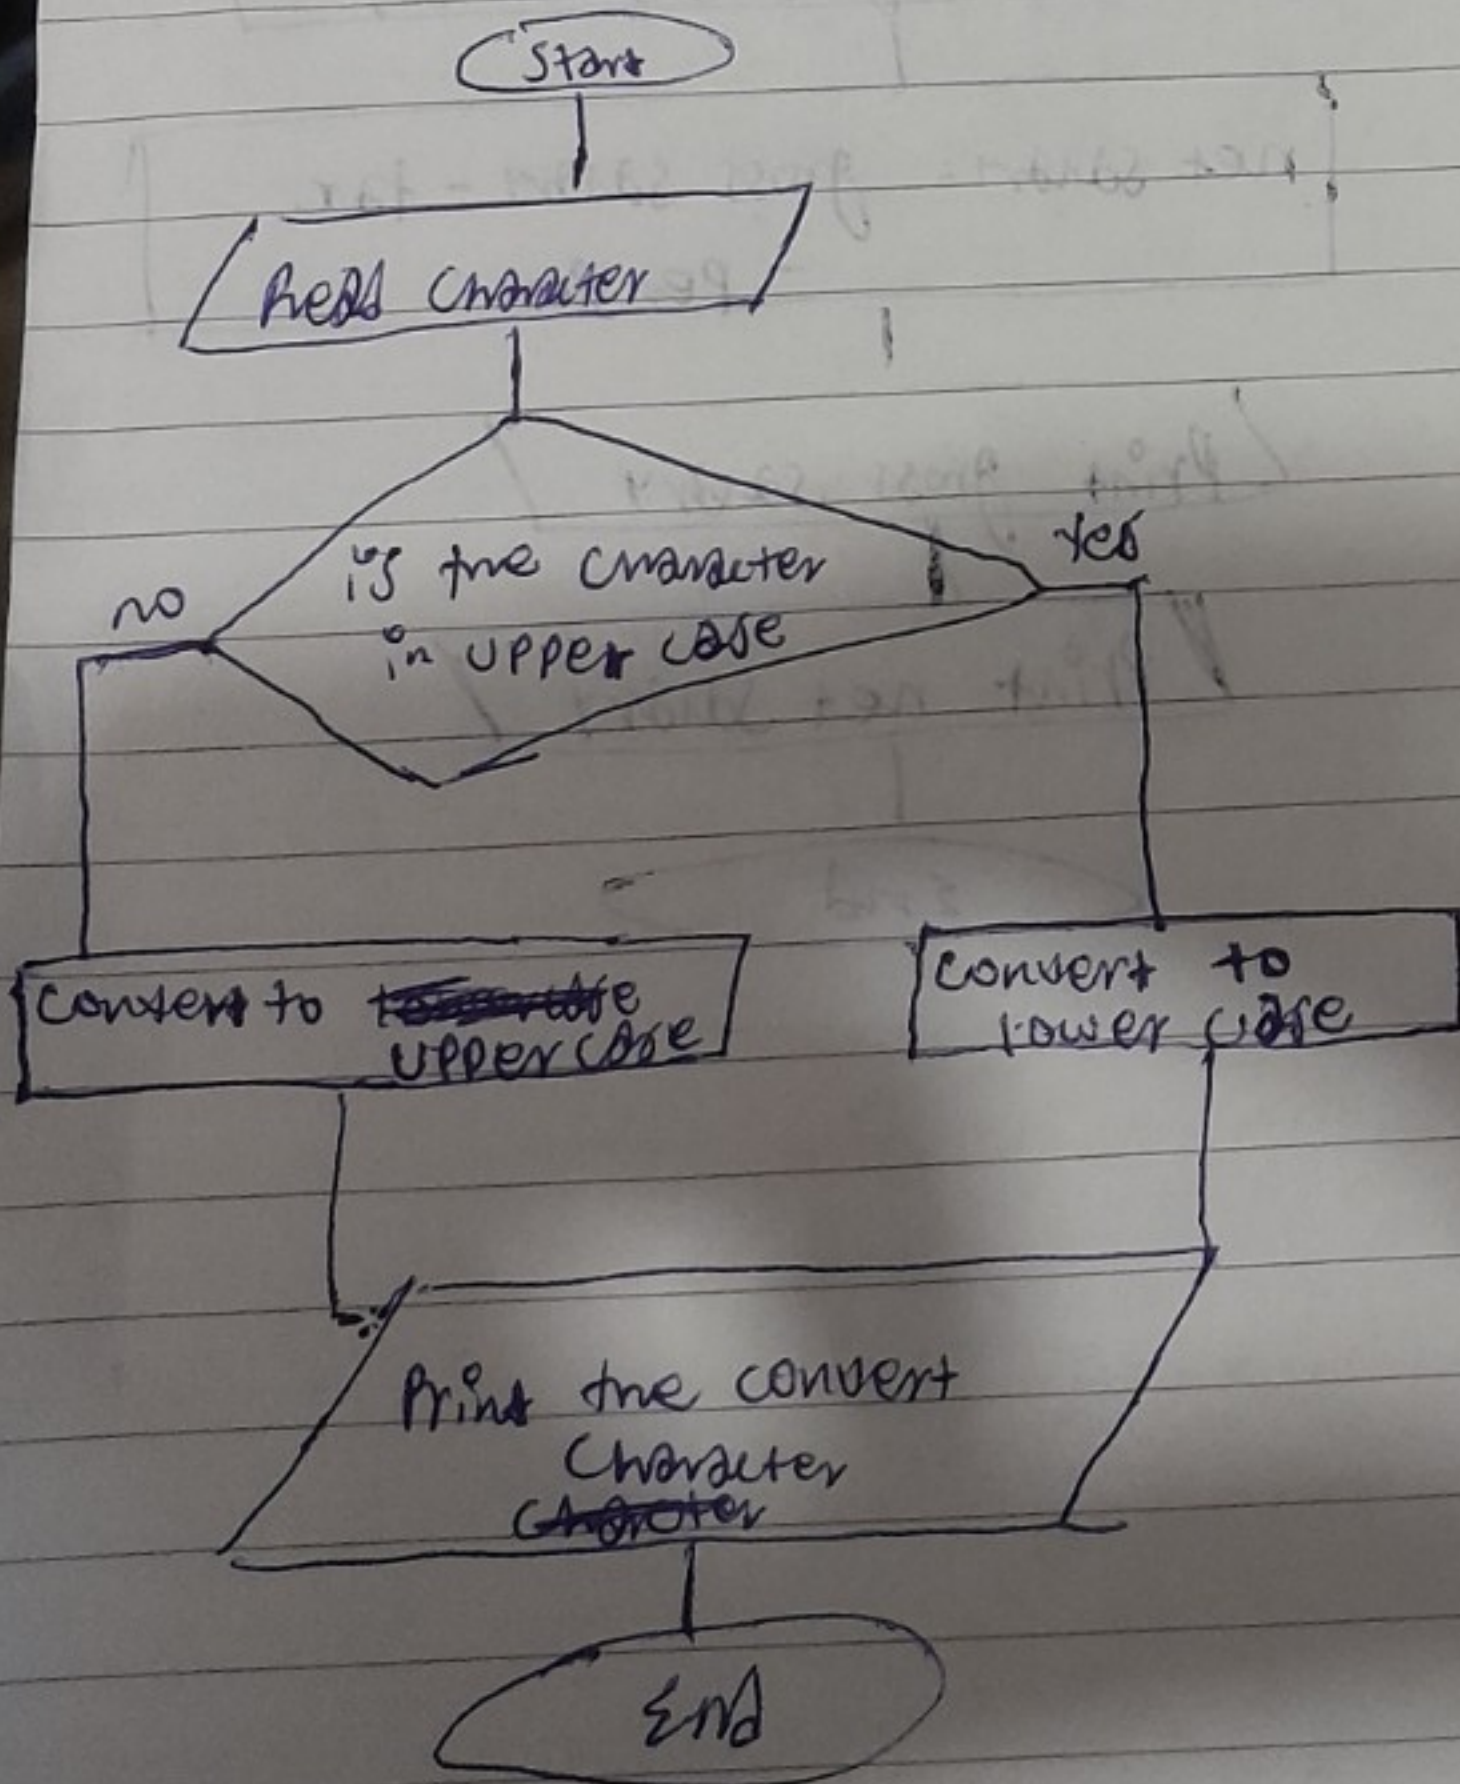 Start
Read Character
is the Character
in upper case
no
Yes
Convert to
upper case
Convert to
Lower case
Print the convert
Character
End